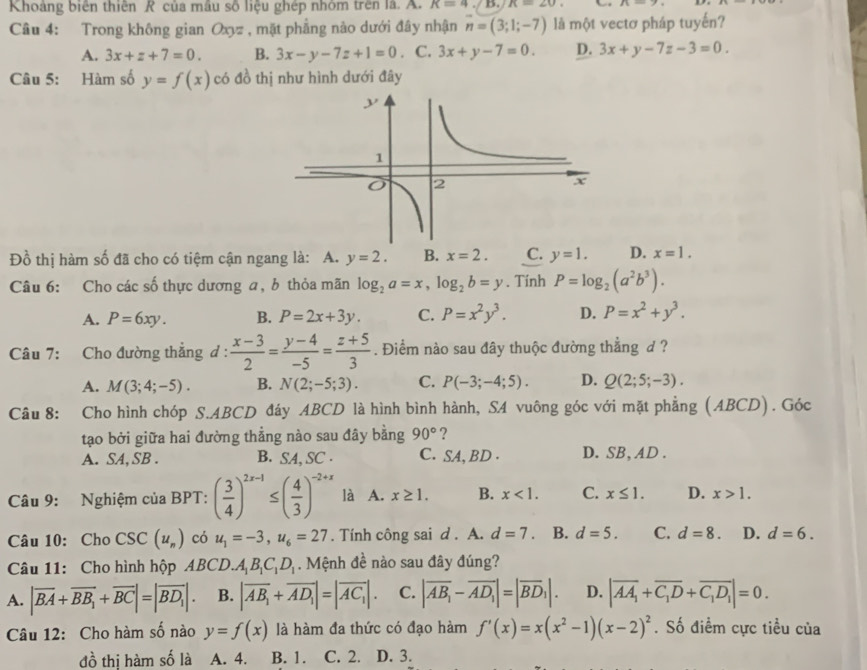 Khoảng biến thiên R của mẫu số liệu ghép nhóm trên là. A. R = 4. B. R = 20.
Câu 4: Trong không gian Oxyz , mặt phẳng nào dưới đây nhận n = (3;1;−7) là một vectơ pháp tuyến?
A. 3x + z + 7 = 0. B. 3x − y − 7z + 1 = 0. C. 3x + y − 7 = 0. D. 3x + y − 7z − 3 = 0.
Câu 5: Hàm số y = f(x) có đồ thị như hình dưới đây
y
1
O 2 x
Đồ thị hàm số đã cho có tiệm cận ngang là: A. y = 2. B. x = 2. C. y = 1. D. x = 1.
Câu 6: Cho các số thực dương a, b thỏa mãn log₂ a = x, log₂ b = y. Tính P = log₂(a²b³).
A. P = 6xy. B. P = 2x + 3y. C. P = x²y³. D. P = x² + y³.
Câu 7: Cho đường thẳng d : (x−3)/2 = (y−4)/−5 = (z+5)/3. Điểm nào sau đây thuộc đường thẳng d ?
A. M(3;4;−5). B. N(2;−5;3). C. P(−3;−4;5). D. Q(2;5;−3).
Câu 8: Cho hình chóp S.ABCD đáy ABCD là hình bình hành, SA vuông góc với mặt phẳng (ABCD). Góc
tạo bởi giữa hai đường thẳng nào sau đây bằng 90°?
A. SA, SB. B. SA, SC. C. SA, BD. D. SB, AD.
Câu 9: Nghiệm của BPT: (3/4)^(2x−1) ≤ (4/3)^(−2+x) là A. x ≥ 1. B. x < 1. C. x ≤ 1. D. x > 1.
Câu 10: Cho CSC (uₙ) có u₁ = −3, u₆ = 27. Tính công sai d. A. d = 7. B. d = 5. C. d = 8. D. d = 6.
Câu 11: Cho hình hộp ABCD.A₁B₁C₁D₁. Mệnh đề nào sau đây đúng?
A. |BA + BB₁ + BC| = |BD₁|. B. |AB₁ + AD₁| = |AC₁|. C. |AB₁ − AD₁| = |BD₁|. D. |AA₁ + C₁D + C₁D₁| = 0.
Câu 12: Cho hàm số nào y = f(x) là hàm đa thức có đạo hàm f'(x) = x(x² − 1)(x − 2)². Số điểm cực tiểu của
đồ thị hàm số là A. 4. B. 1. C. 2. D. 3.